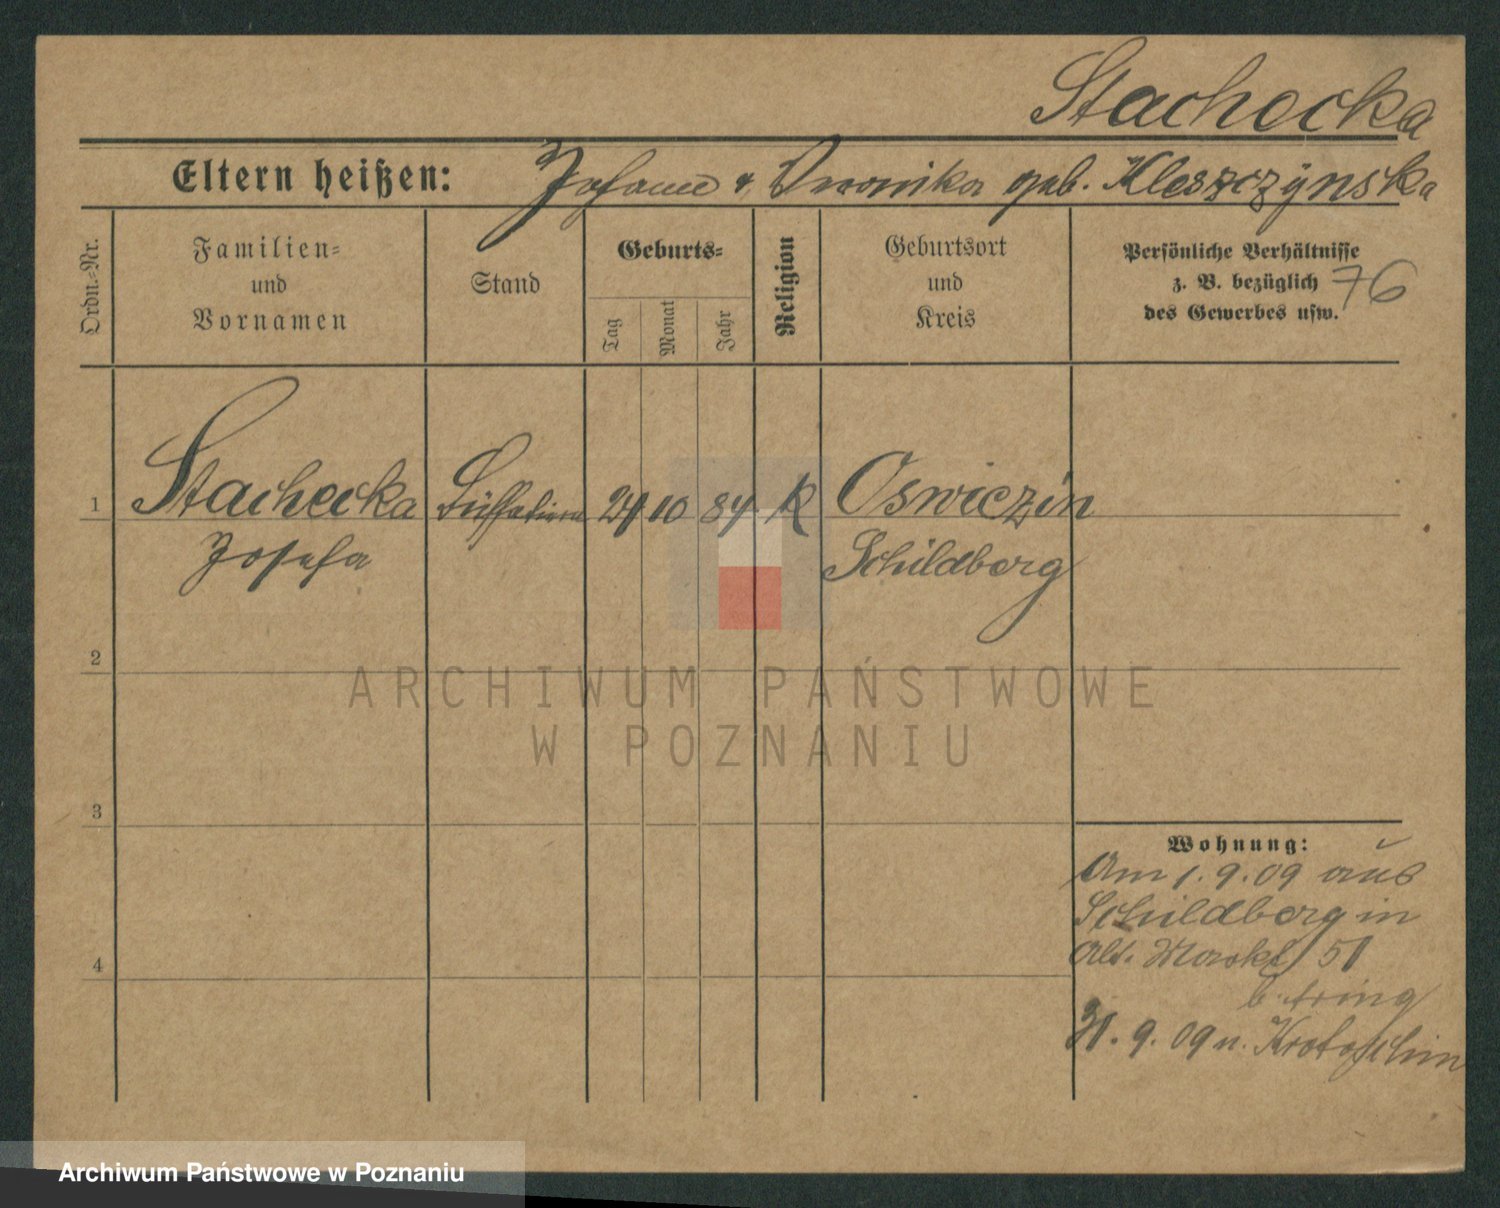 Stachecka
Eltern heißen: Johann u. Veronika geb. Kleszczÿnska
Ordn.-Nr.
Familien-
und
Vornamen
Stand
Geburts-
Tag
Monat
Jahr
Religion
Geburtsort
und
Kreis
Persönliche Verhältnisse
z. B. bezüglich
des Gewerbes usw.
76
1 Stachecka 24 10 84 K Oswiczin
Josefa Schildberg
2
3
4
Wohnung:
Am 1.9.09 aus
Schildberg in
Alt. Markt 51
b.
9.09 n. Krotoschin
ARCHIWUM PAŃSTWOWE
W POZNANIU
Archiwum Państwowe w Poznaniu